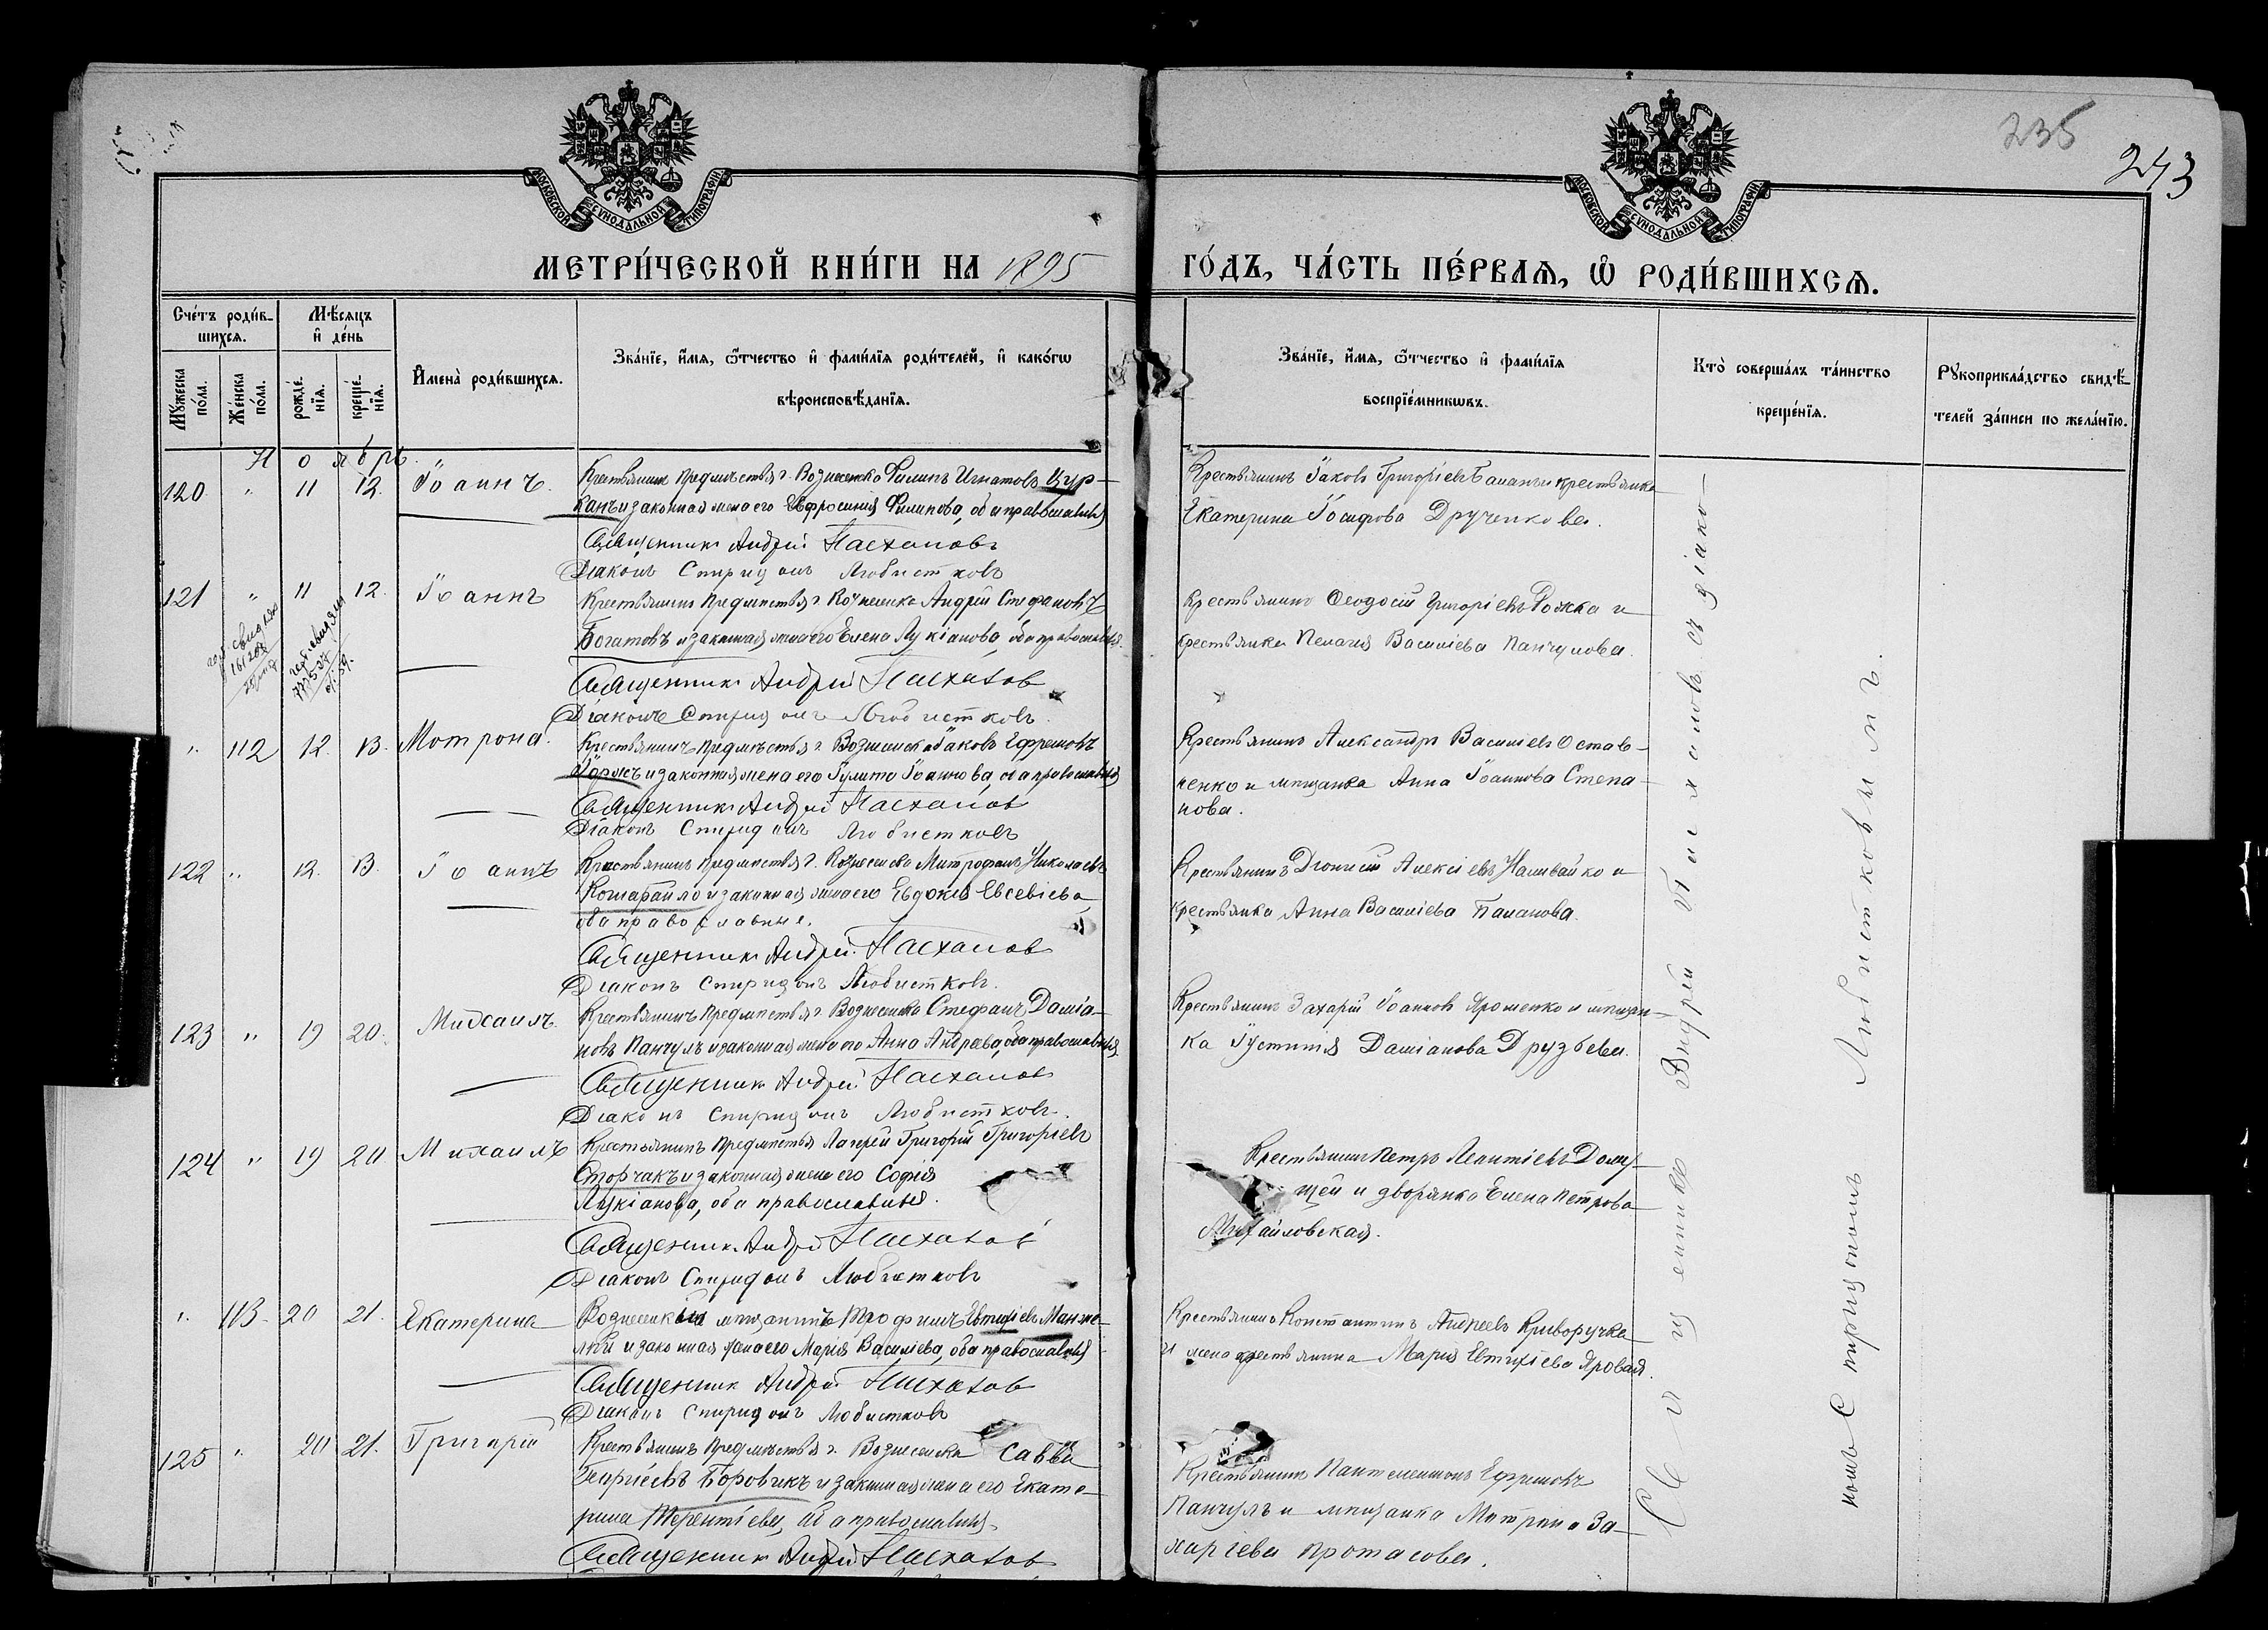 235
243
МОСКОВСКОЙ СѴНОДАЛЬНОЙ ТИПОГРАФІИ
МОСКОВСКОЙ СѴНОДАЛЬНОЙ ТИПОГРАФІИ
МЕТРИ́ЧЕСКОЙ КНИ́ГИ НА 1895 ГО́ДЪ, ЧА́СТЬ ПЕ́РВАЯ, Ѡ҆ РОДИ́ВШИХСЯ.
Сче́тъ роди́в-
шихся.
Мѣ́сяцъ
и҆ де́нь
Мꙋ́жеска по́ла.
Же́нска по́ла.
рожде́нїя.
креще́нїя.
И҆мена̀ роди́вшихся.
Зва́нїе, и҆́мя, ѻ҆́тчество и҆ фами́лїя роди́телей, и҆ како́гѡ
вѣроисповѣ́данїя.
Зва́нїе, и҆́мя, ѻ҆́тчество и҆ фами́лїя
воспрїе́мникѡвъ.
Кто̀ соверша́лъ та́инство
креще́нїя.
Рꙋкоприкла́дство свидѣ́-
телей за́писи по жела́нїю.
Ноябрь.
120 " 11 12. Іоаннъ. Крестьянинъ предмѣстья г. Вознесенска Филипъ Игнатовъ Цур-
канъ и законная жена его Евфросинія Филипова, оба православныя
Священникъ Андрей
Діаконъ Спиридонъ Любистковъ
Крестьянинъ Іаковъ Григоріевъ Баланъ и крестьянка
Екатерина Іосифова Друченкова.
121 " 11 12. Іоаннъ Крестьянинъ предмѣстья г. Вознесенска Андрей Стефановъ
Богатовъ и законная жена его Елена Лукіанова, оба православныя.
Священникъ Андрей
Діаконъ Спиридонъ Любистковъ.
Крестьянинъ Ѳеодосій Григоріевъ Рожка и
крестьянка Пелагія Василіева Панчулова.
" 112 12. 13. Мотрона. Крестьянинъ предмѣстья г. Вознесенска Іаковъ Ефремовъ
и законная жена его Іулита Іоаннова, оба православныя
Священникъ Андрей
Діаконъ Спиридонъ Любистковъ
Крестьянинъ Александръ Василіевъ Остав-
ченко и мѣщанка Анна Іоаннова Степа-
нова.
122 " 12. 13. Іоаннъ Крестьянинъ предмѣстья г. Вознесенска Митрофанъ Николаевъ
и законная жена его Евдокія Евсевіева,
оба православные.
Священникъ Андрей
Діаконъ Спиридонъ Любистковъ.
Крестьянинъ Діонисій Алексіевъ Наливайко и
крестьянка Анна Василіева Баланова.
123 " 19 20. Михаилъ. Крестьянинъ предмѣстья г. Вознесенска Стефанъ Даміа-
новъ Панчулъ и законная жена его Анна Андреева, оба православныя
Священникъ Андрей
Діаконъ Спиридонъ Любистковъ.
Крестьянинъ Захарій Іоанновъ Ярошенко и мѣщан-
ка Іустинія Даміанова Друзьева.
124 " 19 20 Михаилъ Крестьянинъ предмѣстья Лагерей Григорій Григоріевъ
Сторчакъ и законная жена его Софія
Лукіанова, оба православныя.
Священникъ Андрей
Діаконъ Спиридонъ Любистковъ
Крестьянинъ Петръ Леонтіевъ
и дворянка Елена Петрова
Михайловская.
" 113. 20 21. Екатерина Вознесенскій мѣщанинъ Трофимъ Евтихіевъ
и законная жена его Марія Василіева, оба православныя
Священникъ Андрей
Діаконъ Спиридонъ Любистковъ
Крестьянинъ Константинъ Андреевъ Криворучка
и жена крестьянина Марія Евтихіева Яровая.
125 " 20 21. Григорій Крестьянинъ предмѣстья г. Вознесенска Савва
Георгіевъ Боровикъ и законная жена его Екате-
рина Терентіева, оба православныя.
Священникъ Андрей
Крестьянинъ Пантелеимонъ Ефремовъ
Панчулъ и мѣщанка Матрона За-
харіева Протасова.
Священникъ Андрей съ діако-
номъ Спиридономъ Любистковымъ.